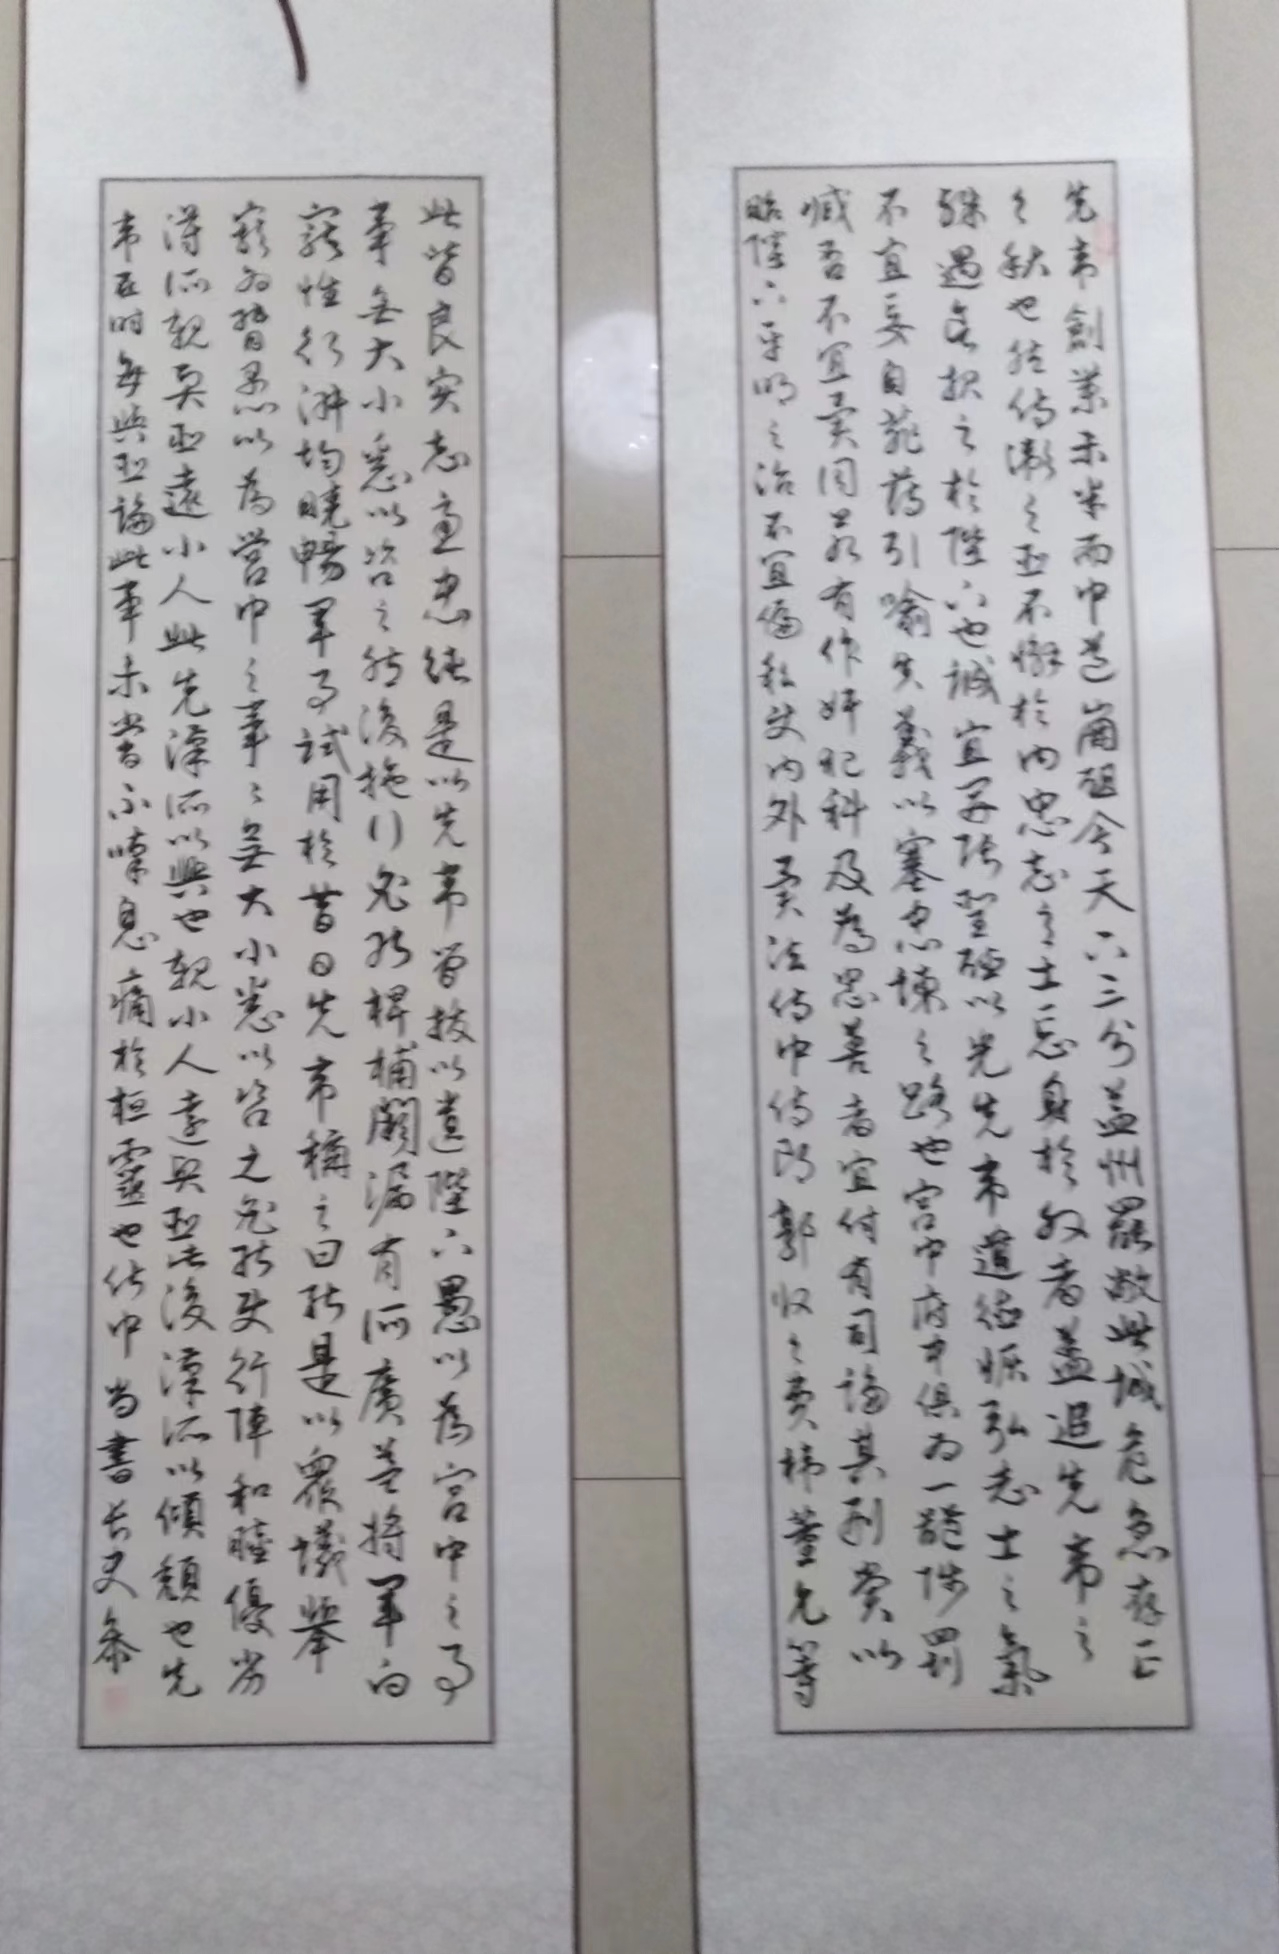 先帝創業未半而中道崩殂今天下三分益州罷敝此誠危急存亡
之秋也然侍衛之臣不懈於內忠志之士忘身於外者蓋追先帝之
殊遇欲報之於陛下也誠宜開張聖聽以光先帝遺德恢弘志士之氣
不宜妄自菲薄引喻失義以塞忠諫之路也宮中府中俱為一體陟罰
臧否不宜異同若有作奸犯科及為忠善者宜付有司論其刑賞以
昭陛下平明之治不宜偏私使內外異法侍中侍郎郭攸之費禕董允等
此皆良實志慮忠純是以先帝曾拔以遺陛下愚以為宮中之事
事無大小悉以咨之然後施行必能裨補闕漏有所廣益將軍向
寵性行淑均曉暢軍事試用於昔日先帝稱之曰能是以眾議舉
寵為督愚以為營中之事々無大小悉以咨之必能使行陣和睦優劣
得所親賢臣遠小人此先漢所以興也親小人遠賢臣此後漢所以傾頹也先
帝在時每與臣論此事未嘗不嘆息痛於桓靈也侍中尚書長史參